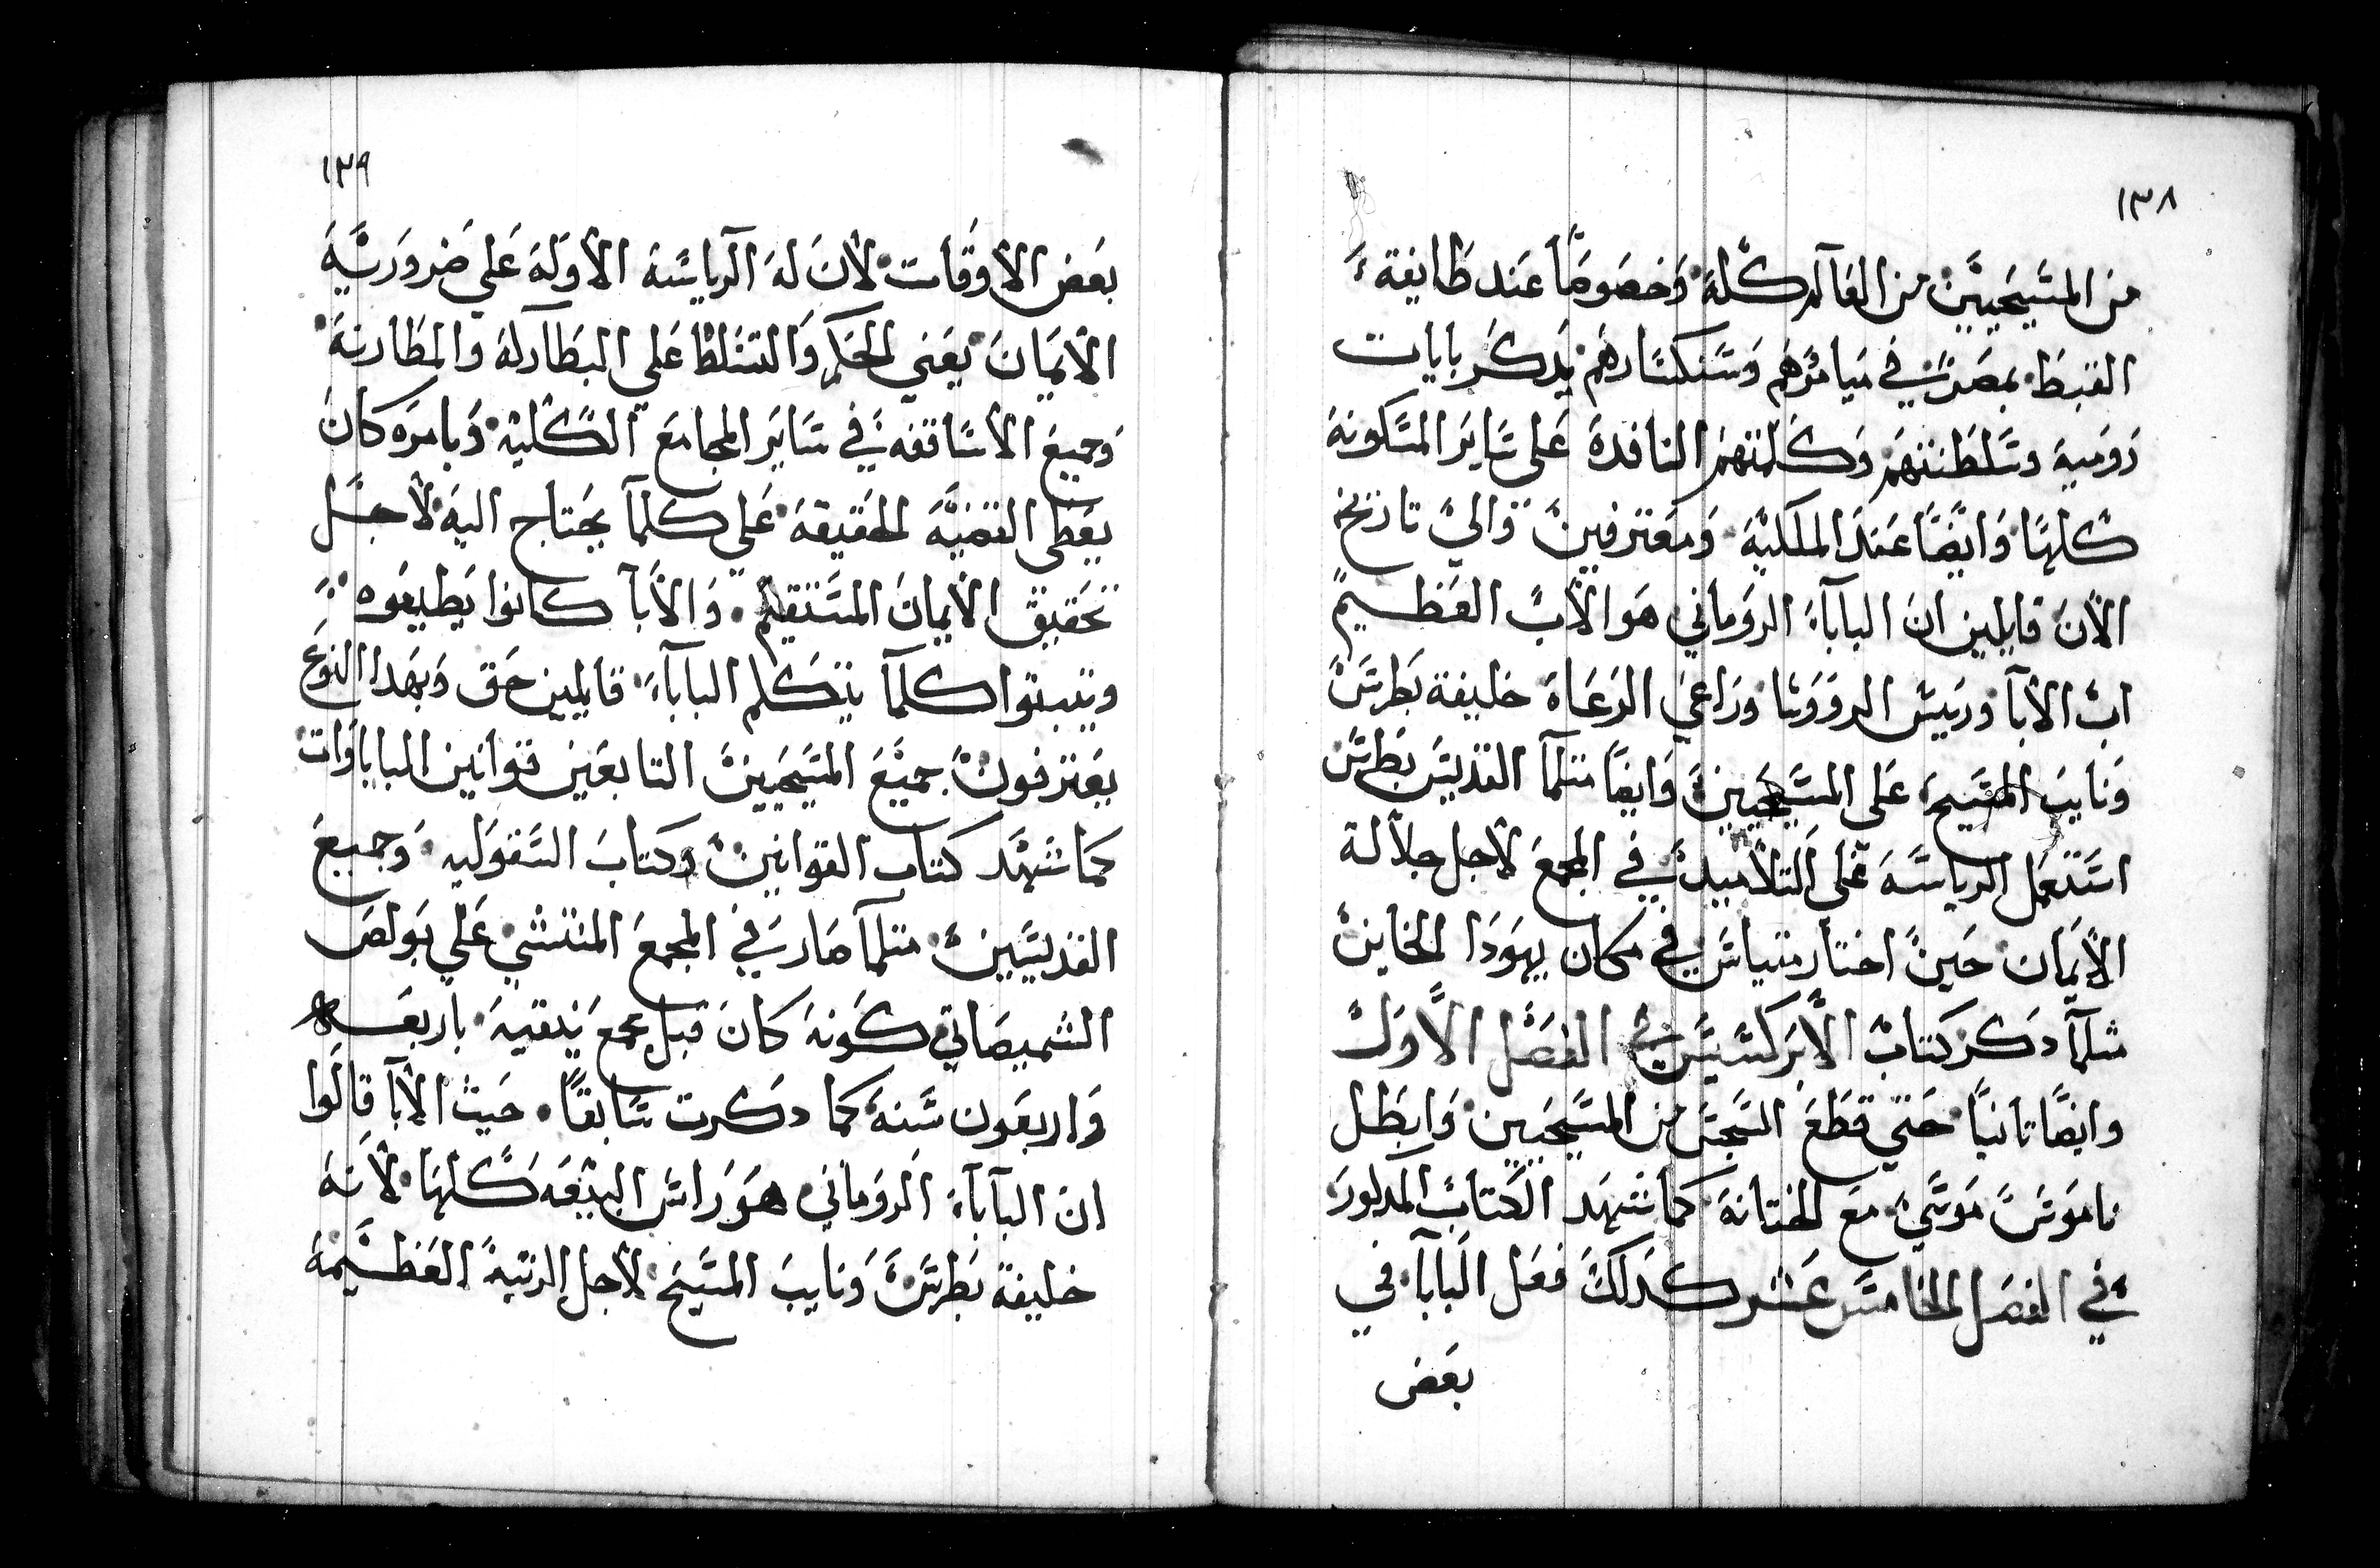 ١٣٨
من المسيحيين من العالم كله وخصوصاً عند طايفة
القبط بمصر في ميامرهم وسنكسارهم يدكر بايات
رومية وسلطنتهم وكلمتهم النافدة على ساير المسكونة
كلها وايضاً عند الملكية ومعترفين والي تاريخ
الان قايلين ان الباباء الروماني هو الاب العظيم
اب الابا وريس الرووسا وراعي الرعاة خليفة بطرس
ونايب المسيح على المسيحيين وايضاً متلما القديس بطرس
استعمل الرياسة علي التلاميد في المجمع لاجل جلالة
الايمان حين اختار متياس في مكان يهودا الخاين
متلما دكر كتاب الابركسيس في الفصل الاول
وايضاً تانياً حتي قطع السجس من المسيحيين وابطل
ناموس موسي مع الختانة كما شهد الكتاب المدلور
في الفصل الخامس عشر كدلك فعل البابا في
بعض
١٣٩
بعض الاوقات لان له الرياسة الاولة علي ضرورية
الايمان يعني الحكم والتسلط علي البطاركة والمطارنة
وجميع الاساقفه في ساير المجامع الكلية وبامره كان
يعطى القضية الحقيقة علي كلما يحتاج اليه لاجل
تحقيق الايمان المستقيم والابا كانوا يطيعوه
ويتبتوا كلما يتكلم الباباء قايلين حق وبهدا النوع
يعترفون جميع المسيحيين التابعين قوانين الباباوات
كما شهد كتاب القوانين وكتاب السقوليه وجميع
القديسين متلما صار في المجمع المنتشي علي بولص
الشميصاتي كونه كان قبل مجمع نيقية باربعه
واربعون سنة كما دكرت سابقاً حيث الابا قالوا
ان الباباء الروماني هو راس البيعه كلها لانه
خليفة بطرس ونايب المسيح لاجل الرتبة العظيمة